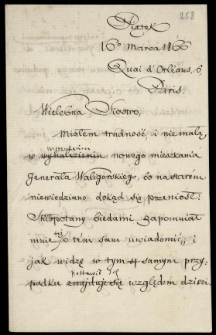 258
Piątek
16º Marca 1866
Quai d'Orléans, 6
Paris.
Wielebna Siostro,
Miałem trudność, i nie małą,
wynajdywaniu
w wynalezieniu nowego mieszkania
Generała Waligórskiego, bo na starem
niewiedziano dokąd się przeniósł.
Skłopotany biedami zapomniał
mnie o tem sam uwiadomić, i
jak widzę w tym samym przy-
postawił się
padku znajduje się względem dzieci.